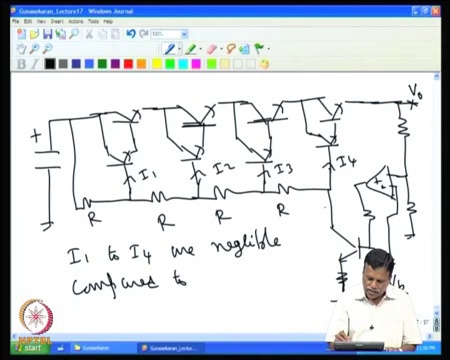 Gunasekaran_Lecture17 - Windows Journal
File Edit View Insert Actions Tools Help
100%
B I
V0
+
I1 I2 I3 I4
R R R R
I1 to I4 are neglible
compared to
start
Gunasekaran
Gunasekaran_Lectu...